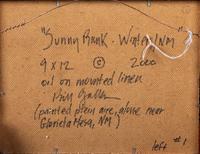 "Sunny Bank - Winter/NM"
9 x 12 © 2000
oil on mounted linen
Bill Gallen
(painted plein aire, above near
Glorieta Mesa, NM)
left #1